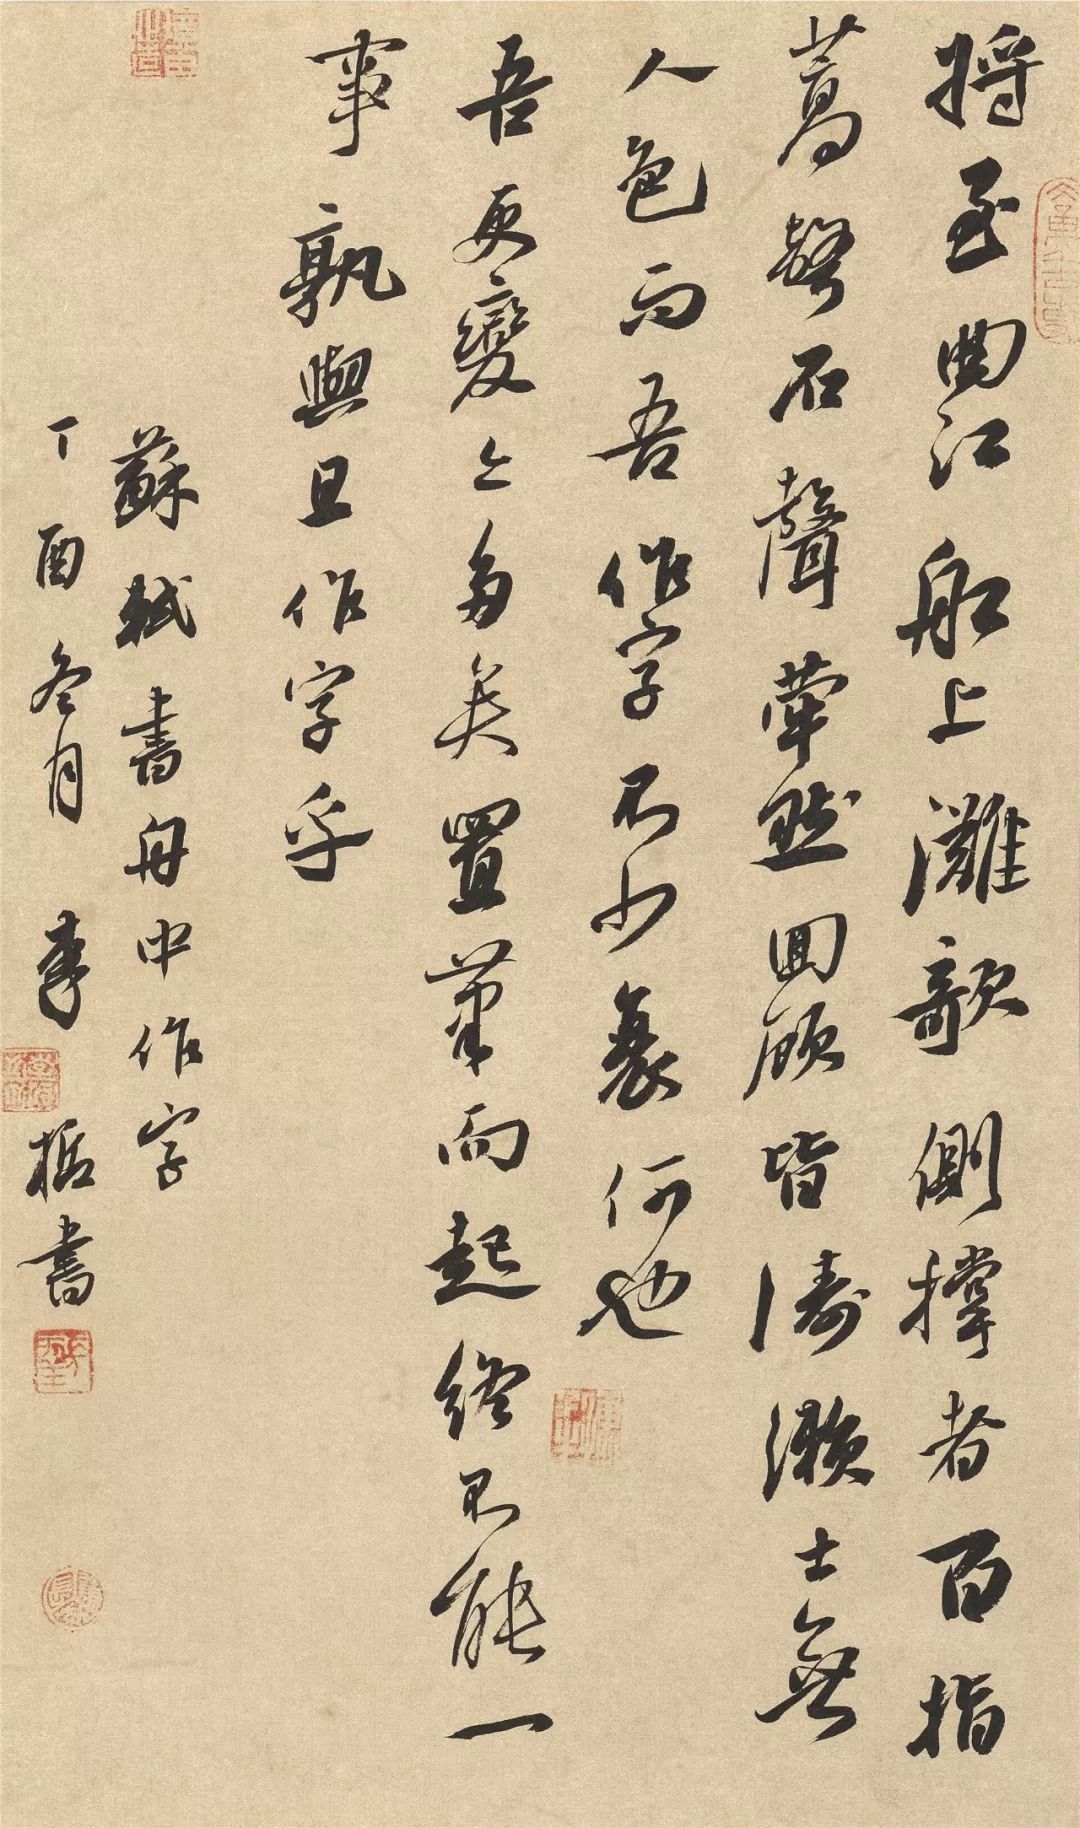 將至曲江船上灘欹側撐者百指
篙聲石聲犖然回顧皆濤瀨士無
人色而吾作字不少衰何也
吾更變亦多矣置筆而起終不能一
事孰與且作字乎
蘇軾書舟中作字
丁酉冬月 李哲書